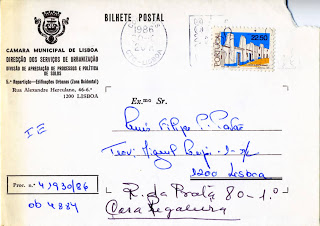 BILHETE POSTAL
CÂMARA MUNICIPAL DE LISBOA
DIRECÇÃO DOS SERVIÇOS DE URBANIZAÇÃO
DIVISÃO DE APRECIAÇÃO DE PROCESSOS E POLÍTICA
DE SOLOS
5.ª Repartição — Edificações Urbanas (Zona Ocidental)
Rua Alexandre Herculano, 46-6.º
1200 LISBOA
1986
PORTUGAL
22.50
Ex.mo Sr.
IE
Luis Filipe
Miguel
1200 Lisboa
Proc. n.º 4J930/86
ob 4884
R. da Prata 80-1.º